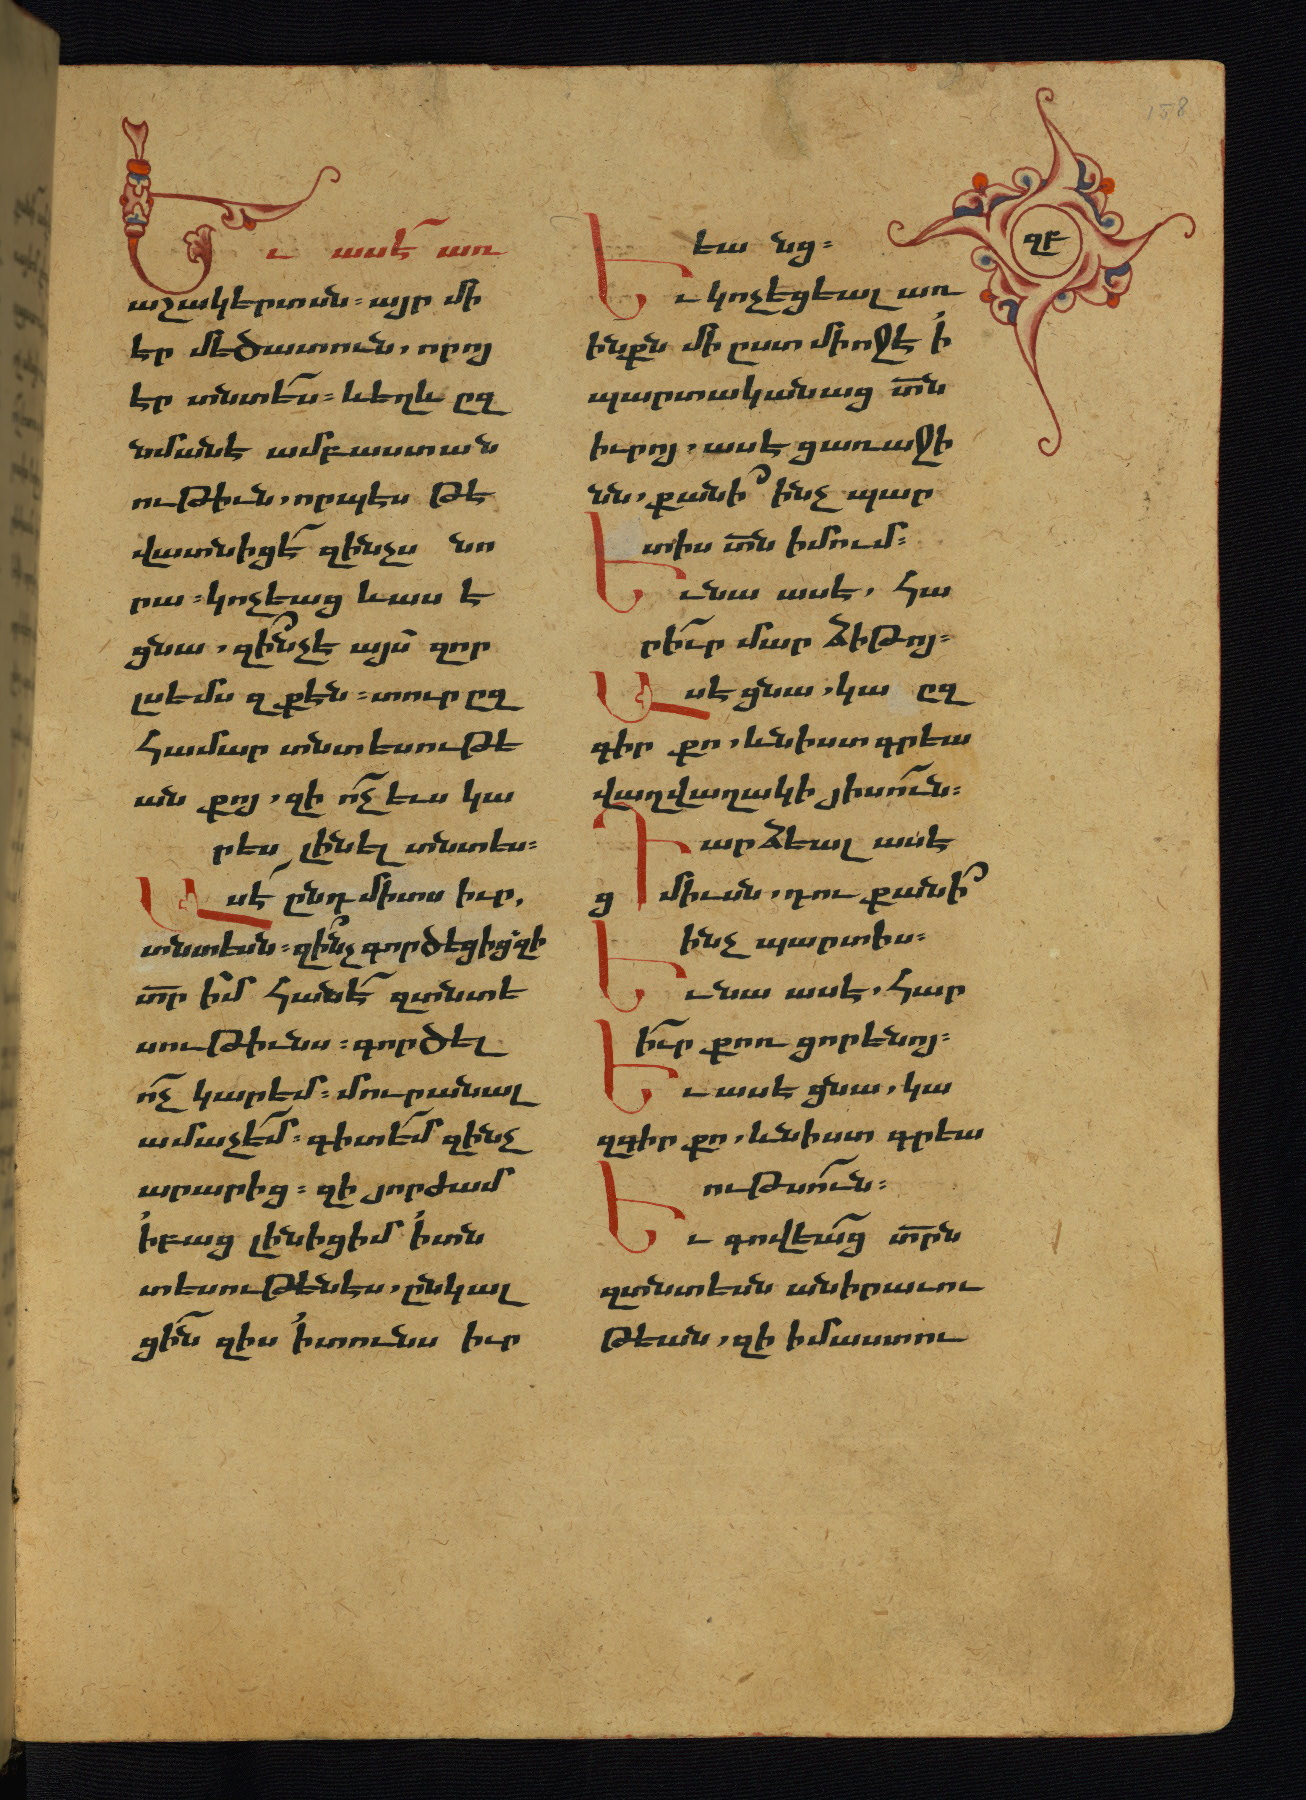 158
զբ
Եւ ասէ՛ առ
աշակերտսն։ այր մի
էր մեծատուն, որոյ
էր տնտե՛ս։ և եղև ըզ
նմանէ ամբաստան
ութիւն, որպէս թէ
վատնիցէ՛ զինչս նո
րա։ կոչեաց և աս է
ցնա, զի՞նչ է այս զոր
լսեմս զքէն։ տուր ըզ
համար տնտեսութե
ան քոյ, զի ո՛չ ևս կա
րես լինել տնտես։
Ասէ՛ ընդ միտս իւր,
տնտեսն։ զի՞նչ գործեցից՝ զի
տր իմ հանէ՛ զտնտե
սութիւնս։ գործել
ո՛չ կարեմ։ մուրանալ
ամաչե՛մ։ գիտե՛մ զինչ
արարից։ զի յորժամ
ի՛ բաց լինիցիմ ի՛ տն
տեսութենէս, ընկալ
ցի՛ն զիս ի՛ տունս իւր
եա նց։
Եւ կոչեցեալ առ
ինքն մի ըստ միոջէ ի՛
պարտականաց տն
իւրոյ, ասէ ցառաջի
նն, քանի՞ ինչ պար
տիս տն իմում։
Եւ նա ասէ, հա
րի՛ւր մար ձիթոյ։
Ասէ ցնա, կա ըզ
գիր քո, և նիստ գրեա
վաղվաղակի յիսո՛ւն։
Դարձեալ ասէ
ց միւսն, դու քանի՞
ինչ պարտիս։
Եւ նա ասէ, հար
ի՛ւր քոռ ցորենոյ։
Եւ ասէ ցնա, կա
զգիր քո, և նիստ գրեա
ութսո՛ւն։
Եւ գովեա՛ց տրն
զտնտեսն անիրաւու
թեան, զի իմաստու